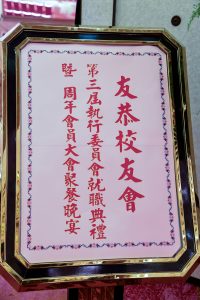 友恭校友會
第三屆執行委員會就職典禮
暨一周年會員大會聚餐晚宴